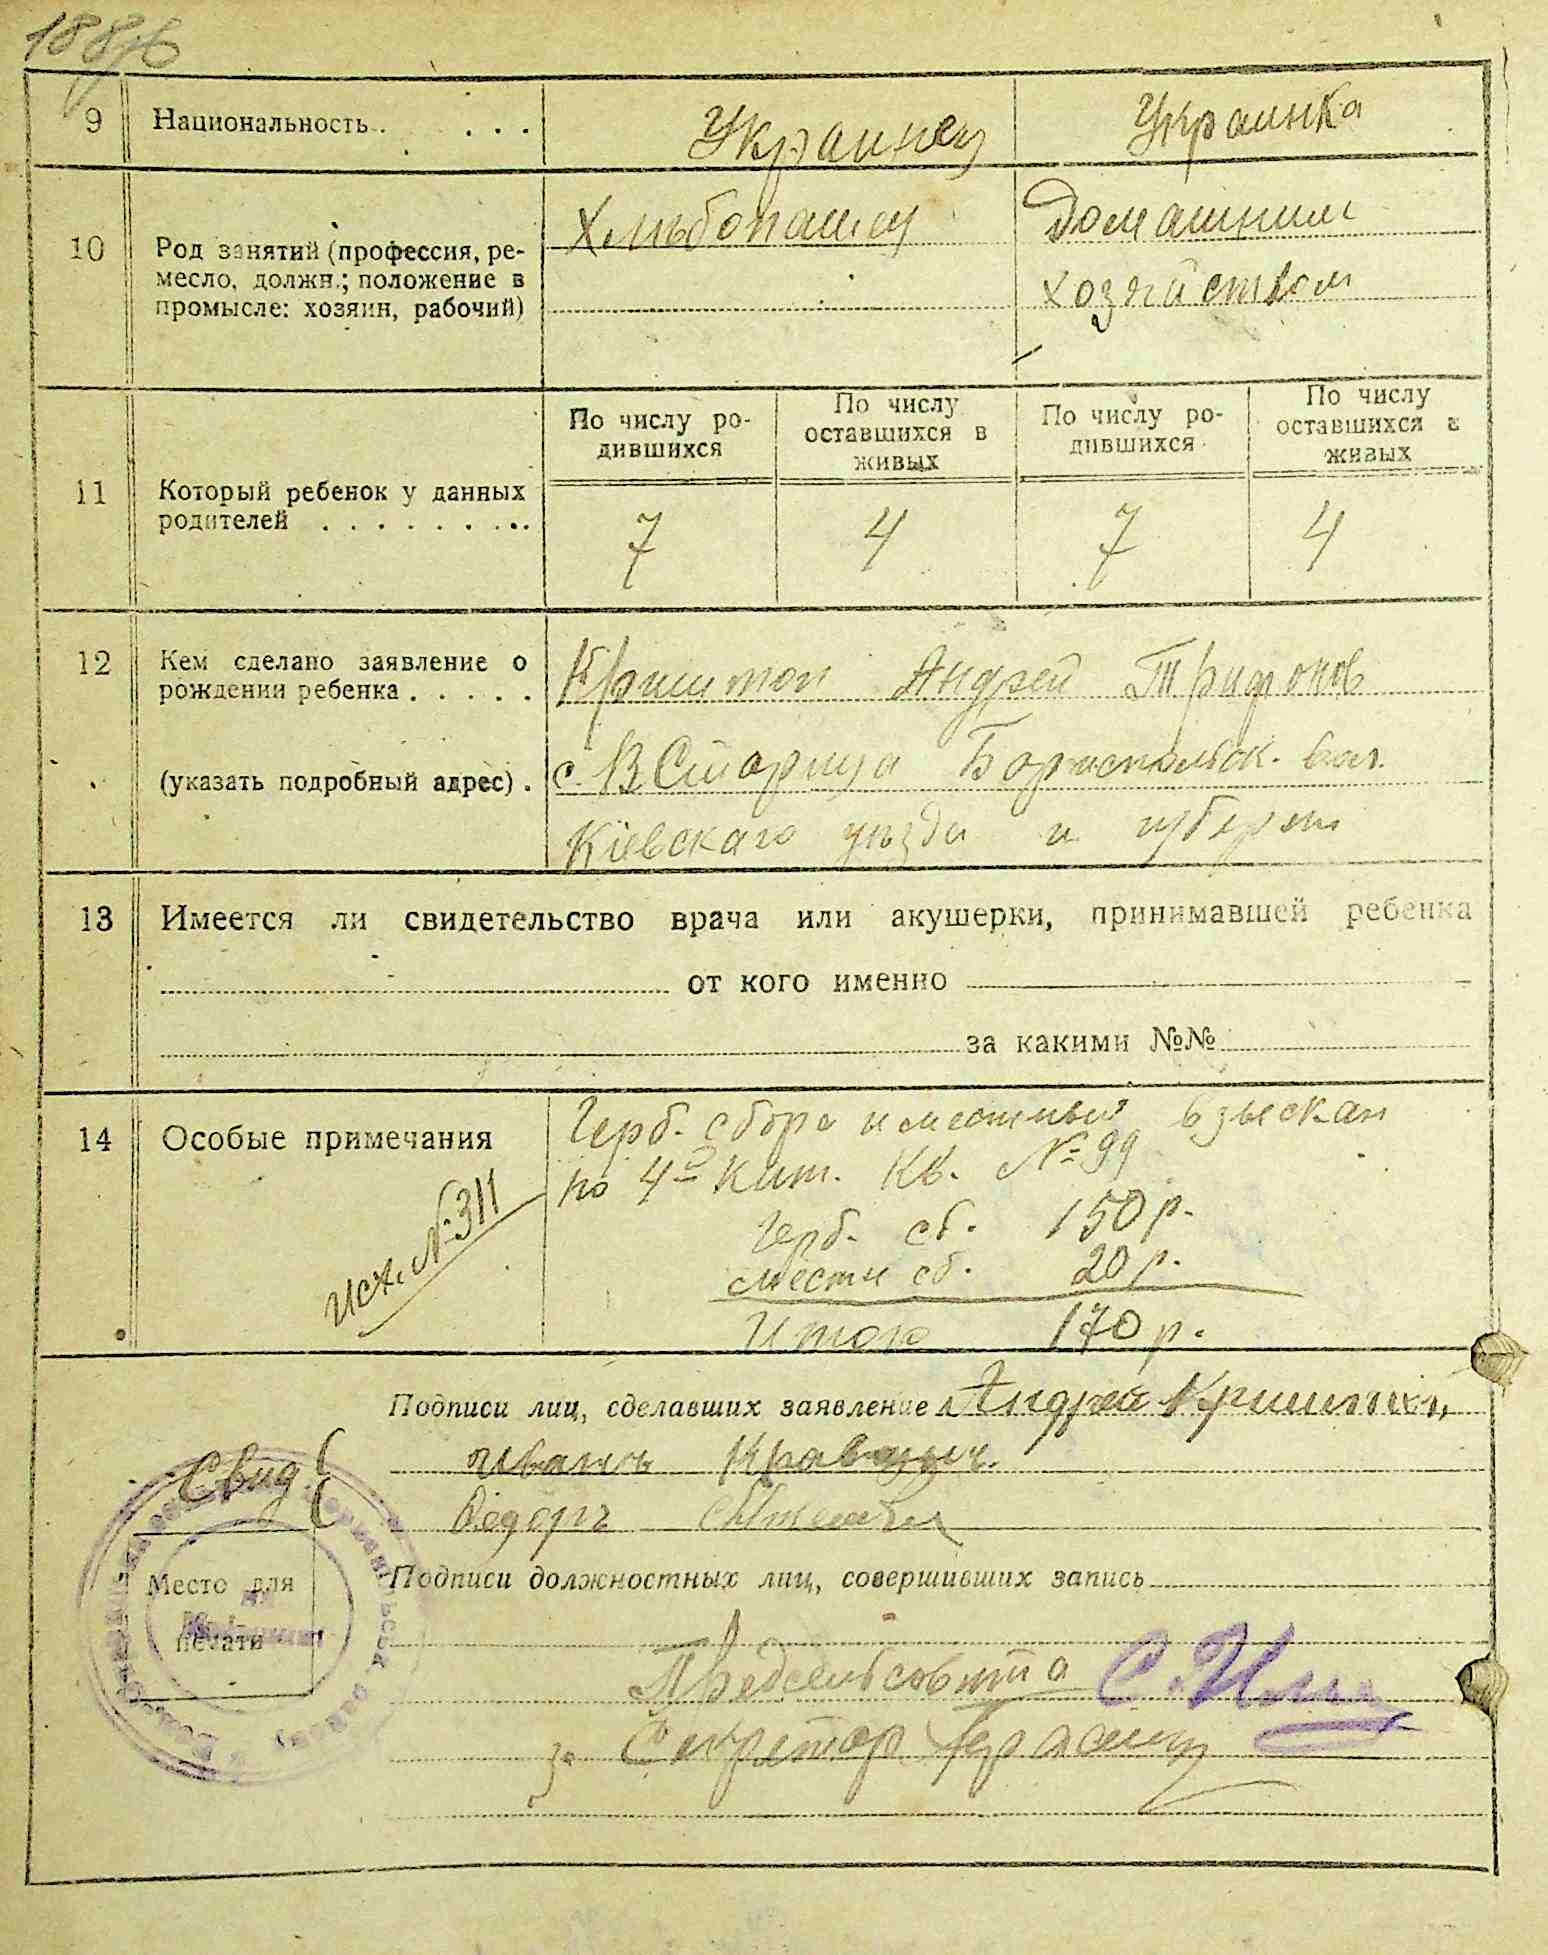 9 Национальность . . . . Украинец Украинка
10 Род занятий (профессия, ре-
месло, должн.; положение в
промысле: хозяин, рабочий)
Хлѣбопашец
Домашним
хозяйством
11 Который ребенок у данных
родителей . . . . . . . . .
По числу ро-
дившихся
По числу
оставшихся в
живых
По числу ро-
дившихся
По числу
оставшихся в
живых
7 4 7 4
12 Кем сделано заявление о
рождении ребенка . . . . .
(указать подробный адрес) .
Криштоп Андрей Трифонов
с. В Старица Бориспольск. вол.
Кіевскаго уѣзда и губерн
13 Имеется ли свидетельство врача или акушерки, принимавшей ребенка
от кого именно
за какими №№
14 Особые примечания
Исх. № 311
Герб. сбора и местный взыскан
по 4й кит. Кв. № 99
Герб. сб. 150 р.
местн сб. 20 р.
Итого 170 р.
Подписи лиц, сделавших заявление Андрей Криштоп
Свид
Иванъ
Ѳедоръ
Место для
печати
Подписи должностных лиц, совершивших запись
Предсельсовета
за Секретар